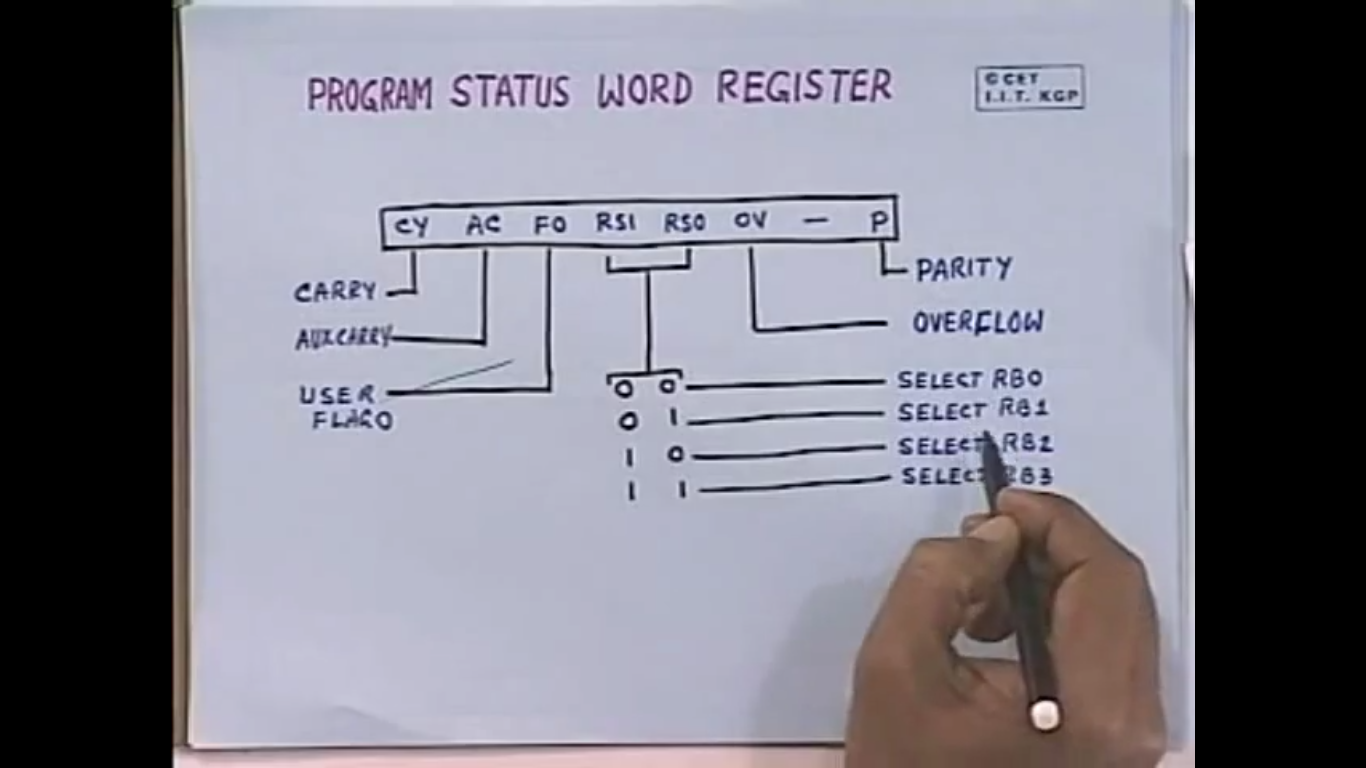 PROGRAM STATUS WORD REGISTER
© CET
I.I.T. KGP
CY AC F0 RS1 RS0 OV — P
CARRY
PARITY
AUX.CARRY
OVERFLOW
USER
FLAG0
0 0 SELECT RB0
0 1 SELECT RB1
1 0 SELECT RB2
1 1 SELECT RB3